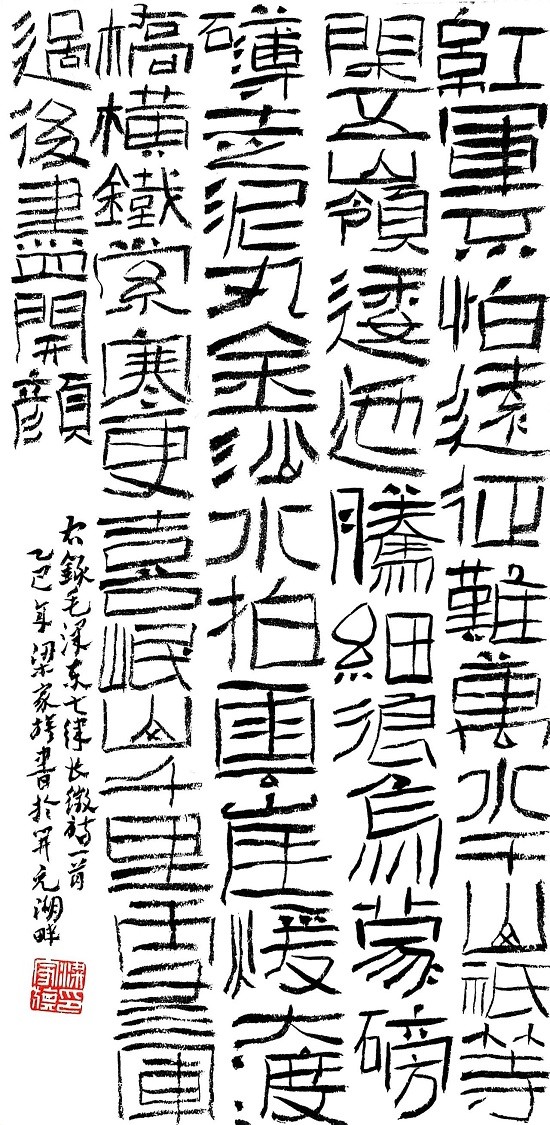 紅軍不怕遠征難萬水千山祇等
閑五嶺逶迤騰細浪烏蒙磅
礴走泥丸金沙水拍雲崖暖大度
橋橫鐵索寒更喜岷山千里雪三軍
過後盡開顏
右錄毛澤东七律长徵詩一首
乙巳年梁家書於开元湖畔